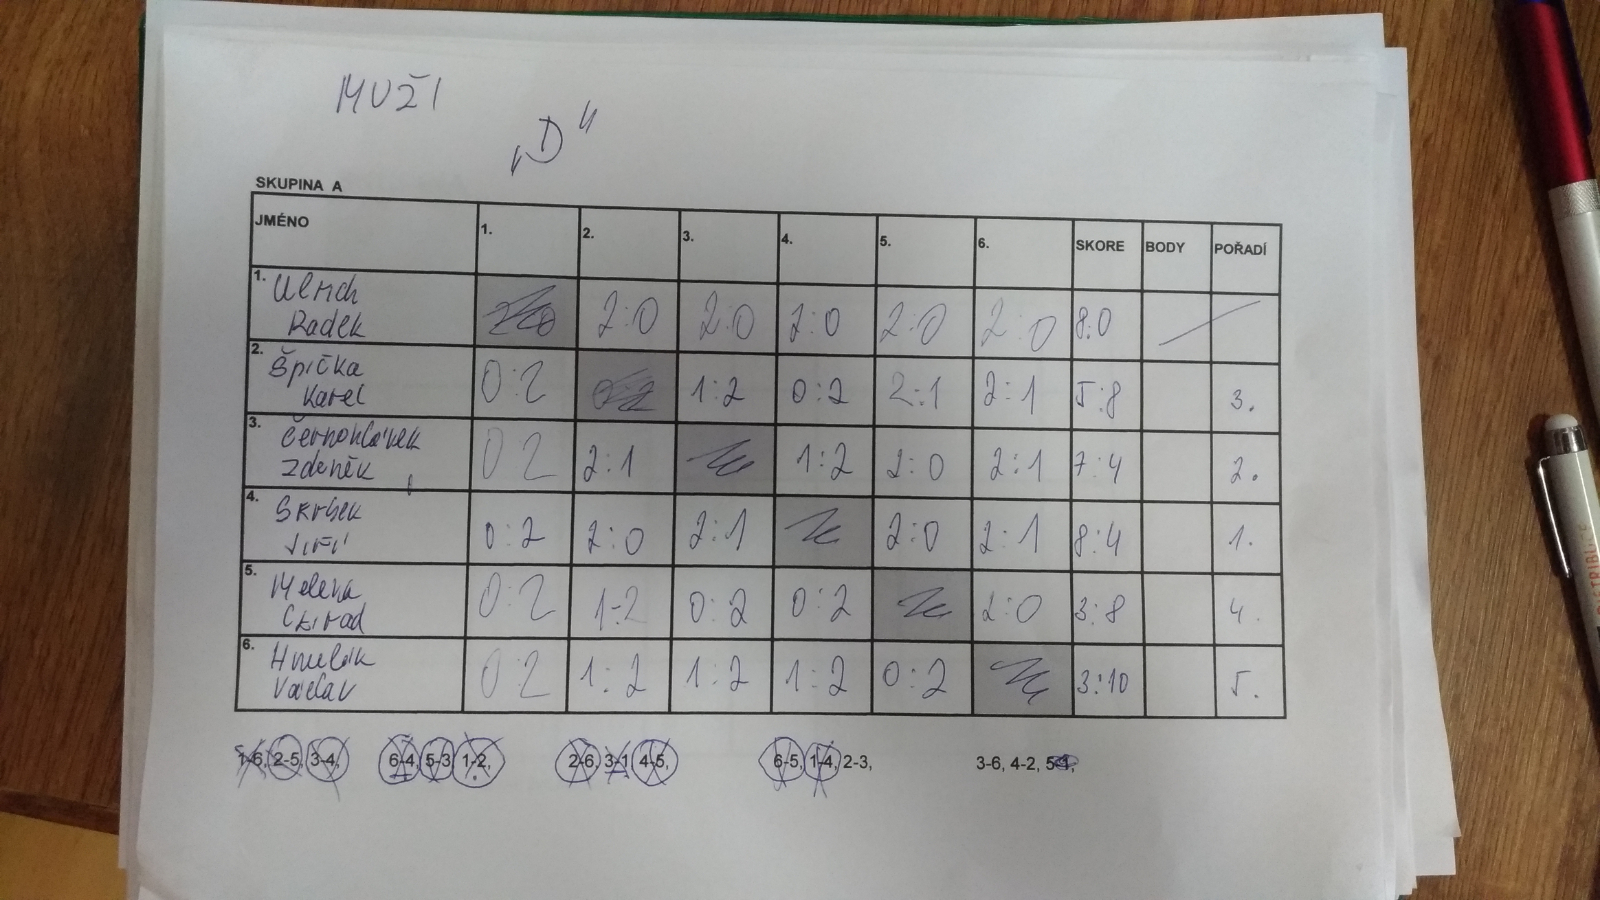 MUŽI
„D“
SKUPINA A
JMÉNO 1. 2. 3. 4. 5. 6. SKORE BODY POŘADÍ
1. Ulrich Radek 2:0 2:0 2:0 2:0 2:0 8:0
2. Špička Karel 0:2 1:2 0:2 2:1 2:1 5:8 3.
3. Černohlávek Zdeněk 0:2 2:1 1:2 2:0 2:1 7:4 2.
4. Skrbek Jiří 0:2 2:0 2:1 2:0 2:1 8:4 1.
5. Melena Ctirad 0:2 1:2 0:2 0:2 2:0 3:8 4.
6. Hmelík Václav 0:2 1:2 1:2 1:2 0:2 3:10 5.
1-6, 2-5, 3-4, 6-4, 5-3, 1-2, 2-6, 3-1, 4-5, 6-5, 1-4, 2-3, 3-6, 4-2, 5-1,